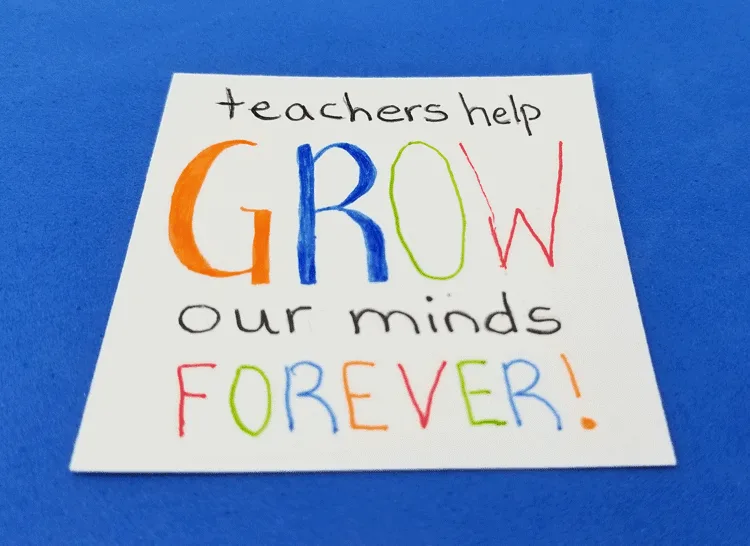 teachers help
GROW
our minds
FOREVER!